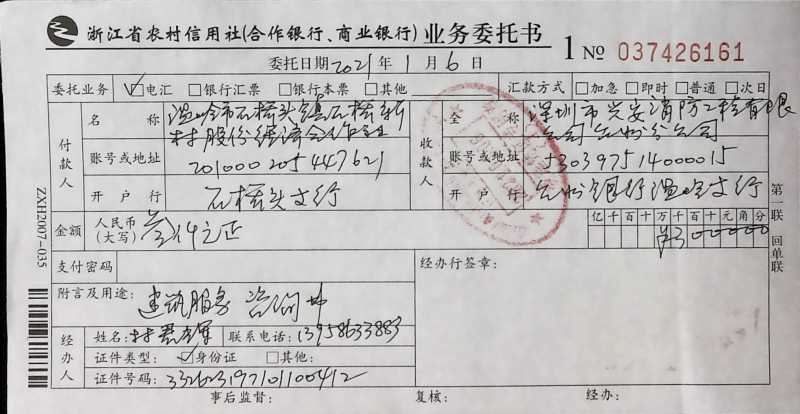 浙江省农村信用社(合作银行、商业银行)业务委托书
1 № 037426161
委托日期 2021年 1月 6日
委托业务 ☑电汇 □银行汇票 □银行本票 □其他 汇款方式 □加急 □即时 □普通 □次日
付款人
名称 温岭市石桥头镇石桥新
村股份经济合作社
账号或地址 201000205447621
开户行 石桥头支行
收款人
全称 深圳市兴安消防工程有限
公司台州分公司
账号或地址 530397514000015
开户行 台州银行温岭支行
金额 人民币(大写) 叁仟元正
亿千百十万千百十元角分
¥300000
支付密码
经办行签章:
附言及用途: 建筑服务 咨询
经办人
姓名: 林 联系电话: 13958633883
证件类型: ☑身份证 □其他:
证件号码: 332623197101100412
事后监督: 复核: 经办:
第一联 回单联
ZXH2007-035